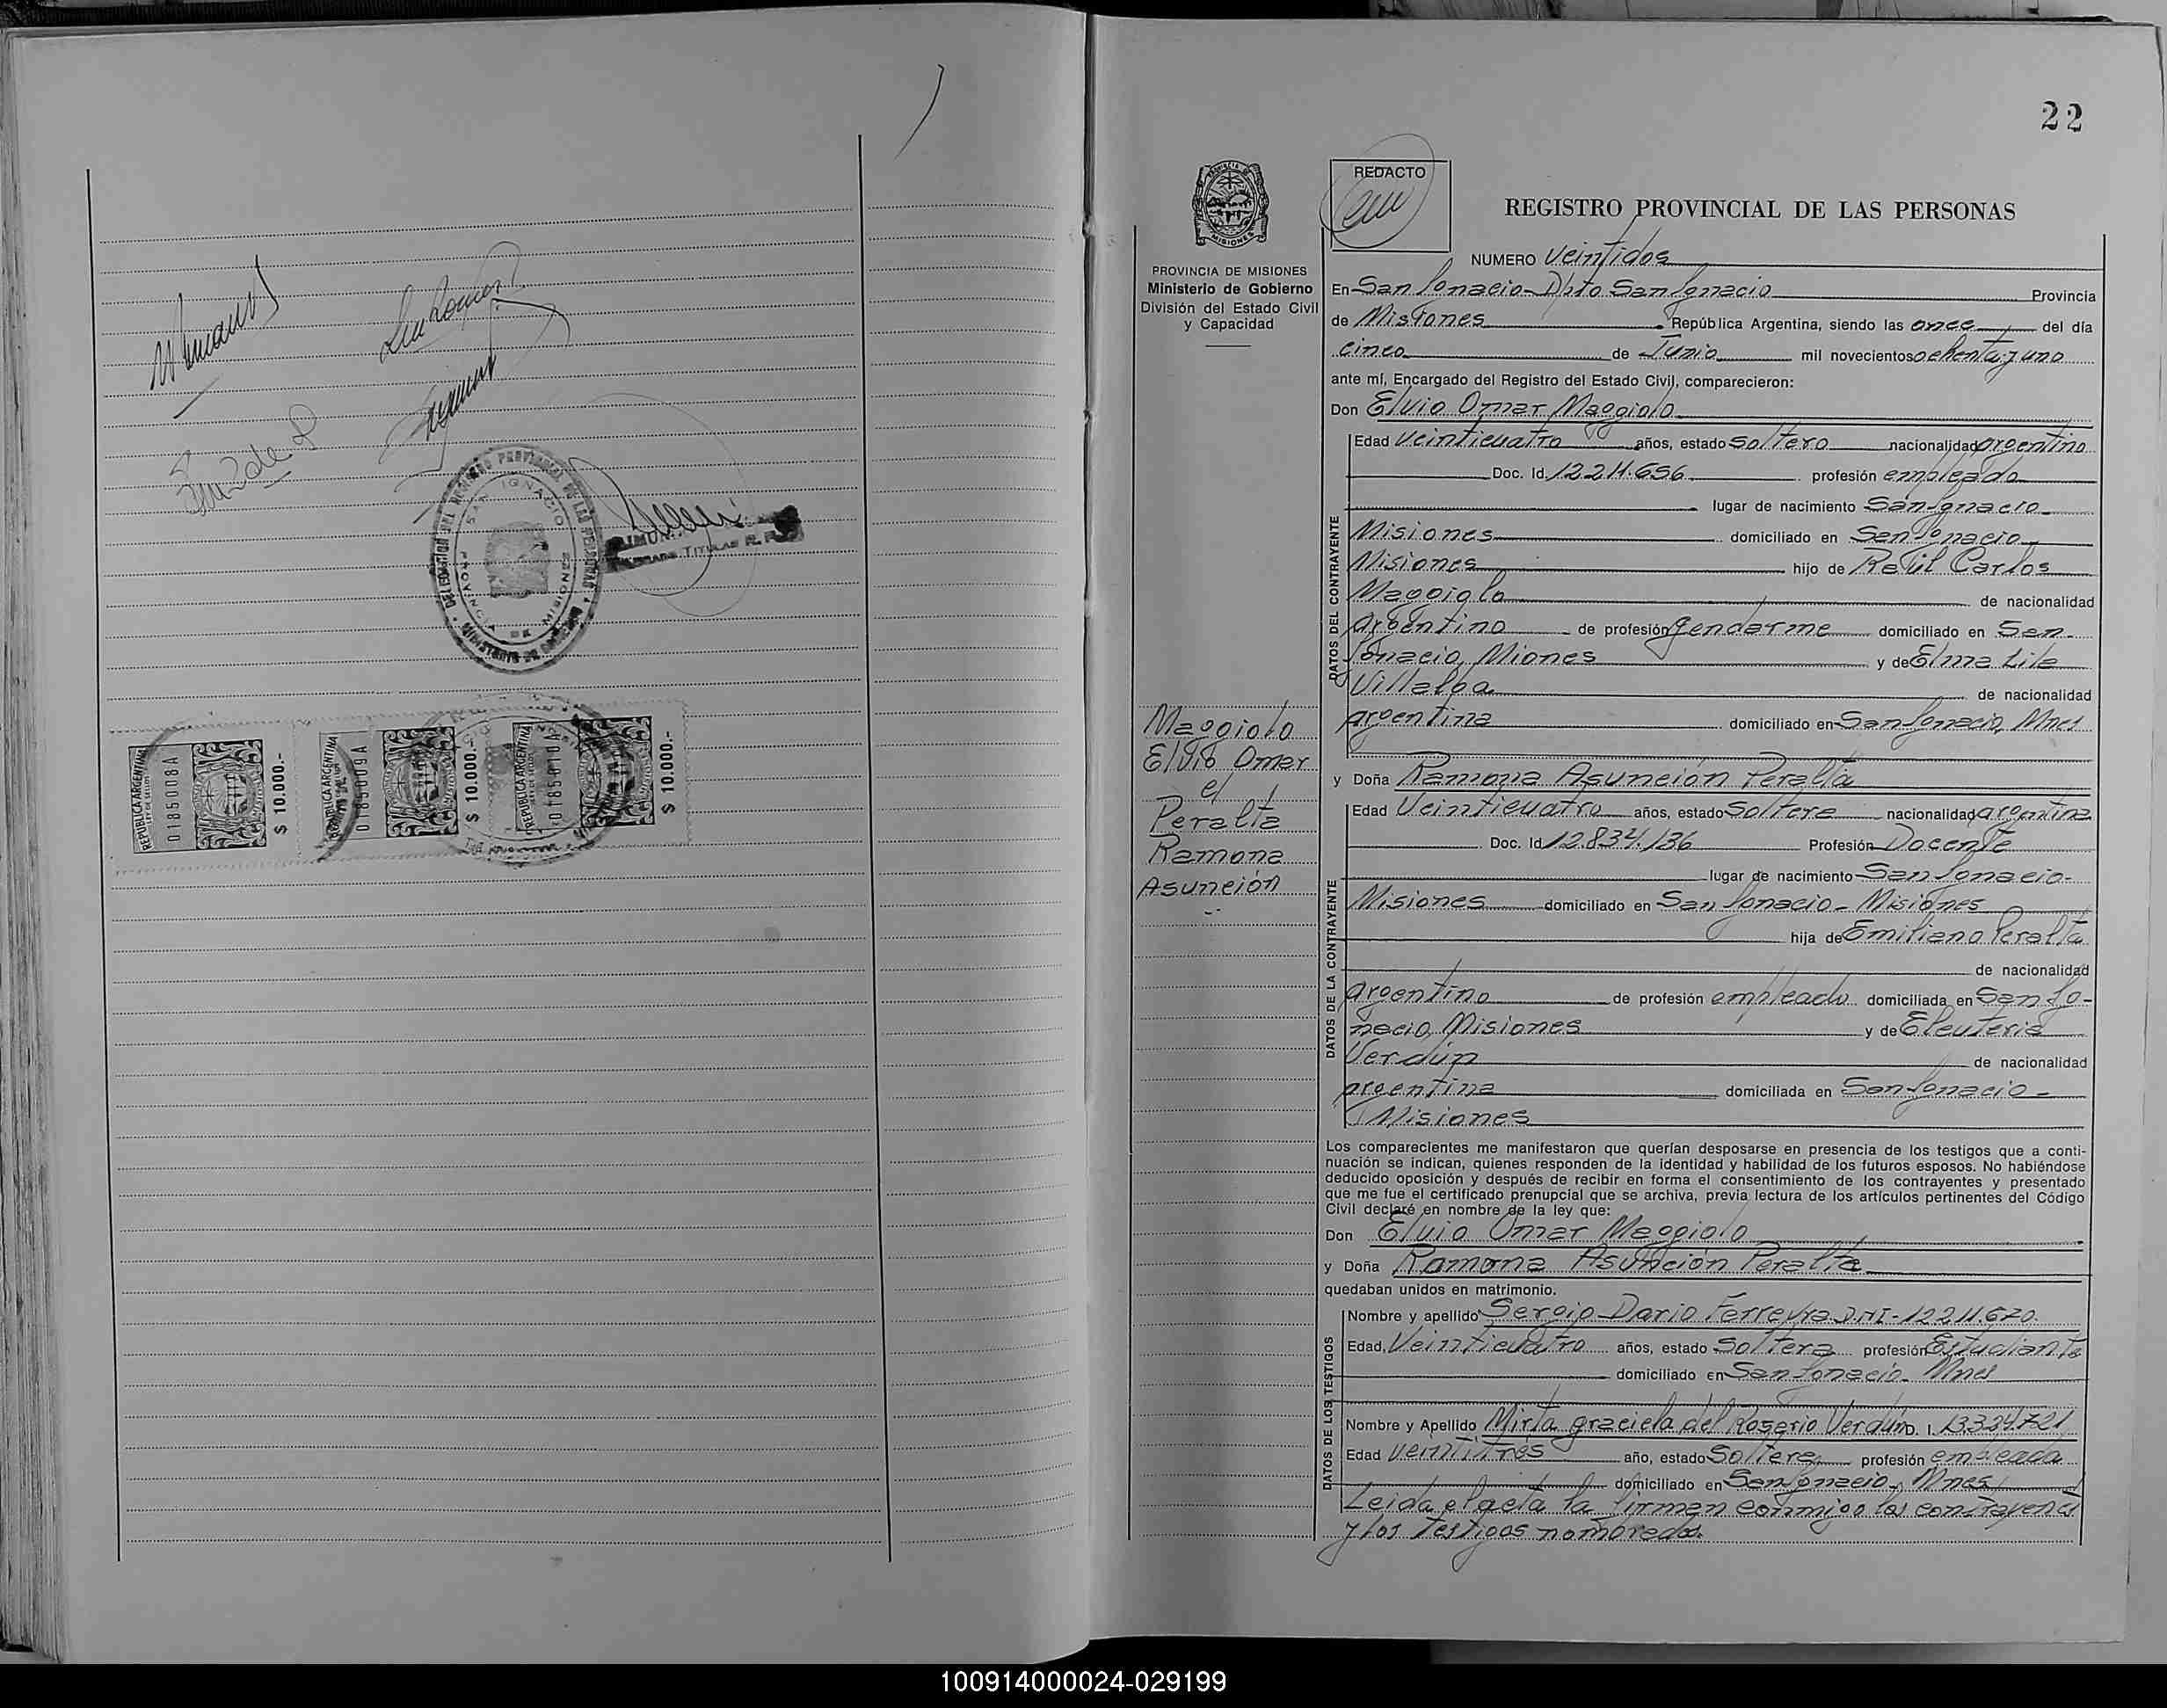 REPUBLICA ARGENTINA
0185008A
$ 10.000.-
REPUBLICA ARGENTINA
0185009A
$ 10.000.-
REPUBLICA ARGENTINA
0185010A
$ 10.000.-
22
REDACTO
REGISTRO PROVINCIAL DE LAS PERSONAS
PROVINCIA DE MISIONES
Ministerio de Gobierno
División del Estado Civil
y Capacidad
Maggiolo
Elvio Omar
c/
Peralta
Ramona
Asunción
NUMERO veintidos
En San Ignacio - Dpto San Ignacio Provincia
de Misiones República Argentina, siendo las once del día
cinco de Junio mil novecientos ochenta y uno
ante mí, Encargado del Registro del Estado Civil, comparecieron:
Don Elvio Omar Maggiolo
DATOS DEL CONTRAYENTE
Edad veinticuatro años, estado soltero nacionalidad argentino
Doc. Id. 12.211.656 profesión empleado
lugar de nacimiento San Ignacio
Misiones domiciliado en San Ignacio
Misiones hijo de Raúl Carlos
Maggiolo de nacionalidad
argentino de profesión gendarme domiciliado en San
Ignacio, Miones y de Elma Lila
Villalba de nacionalidad
argentina domiciliado en San Ignacio, Mnes
y Doña Ramona Asunción Peralta
DATOS DE LA CONTRAYENTE
Edad Veinticuatro años, estado soltera nacionalidad argentina
Doc. Id 12.834.136 Profesión Docente
lugar de nacimiento San Ignacio -
Misiones domiciliado en San Ignacio - Misiones
hija de Emiliano Peralta
de nacionalidad
argentino de profesión empleado domiciliada en San Ig-
nacio, Misiones y de Eleuteria
Verdún de nacionalidad
argentina domiciliada en San Ignacio -
Misiones
Los comparecientes me manifestaron que querían desposarse en presencia de los testigos que a conti-
nuación se indican, quienes responden de la identidad y habilidad de los futuros esposos. No habiéndose
deducido oposición y después de recibir en forma el consentimiento de los contrayentes y presentado
que me fue el certificado prenupcial que se archiva, previa lectura de los artículos pertinentes del Código
Civil declaré en nombre de la ley que:
Don Elvio Omar Maggiolo
y Doña Ramona Asunción Peralta
quedaban unidos en matrimonio.
DATOS DE LOS TESTIGOS
Nombre y apellido Sergio Dario Ferreyra D.N.I - 12.211.670.
Edad, Veinticuatro años, estado soltera profesión Estudiante
domiciliado en San Ignacio - Mnes
Nombre y Apellido Mirta graciela del Rosario Verdún D. I. 13.334.721
Edad veintitres año, estado Soltera profesión empleada
domiciliado en San Ignacio, Mnes
Leida el acta la firman conmigo los contrayentes
y los testigos nombrados.
100914000024-029199